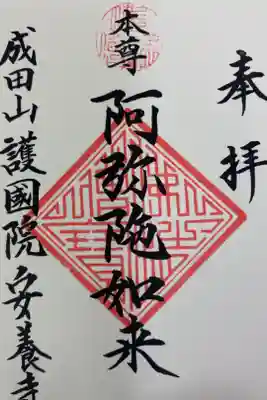 奉拝
本尊
阿弥陀如来
成田山護國院安養寺